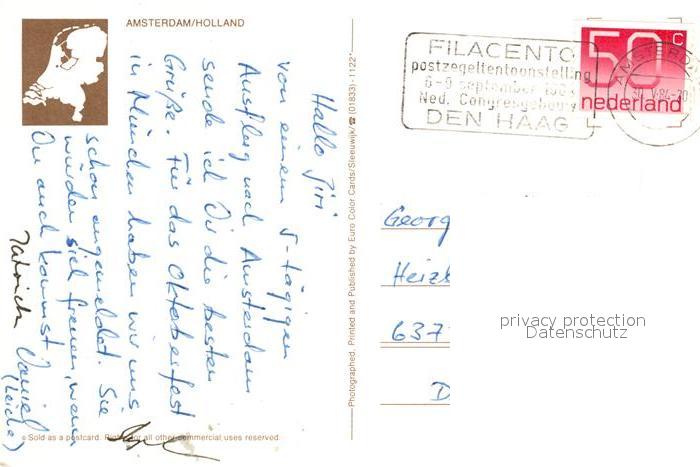 AMSTERDAM/HOLLAND
Hallo Jiri
von einem 5-tägigen
Ausflug nach Amsterdam
sende ich Dir die besten
Grüße. Für das Oktoberfest
in München haben wir uns
schon angemeldet. Sie
würden sich freuen, wenn
Du auch kommst.
Daniel
(Leiche)
Photographed, Printed and Published by Euro Color Cards/Steeuwijk/☎ (01833)-1122*
© Sold as a postcard. Rights for all other commercial uses reserved.
FILACENTO
postzegeltentoonstelling
6-9 september 1984
Ned. Congresgebouw
DEN HAAG
50 c
nederland
AMSTERDAM
30.V.84-20
Georg
Heiz
637
D
privacy protection
Datenschutz